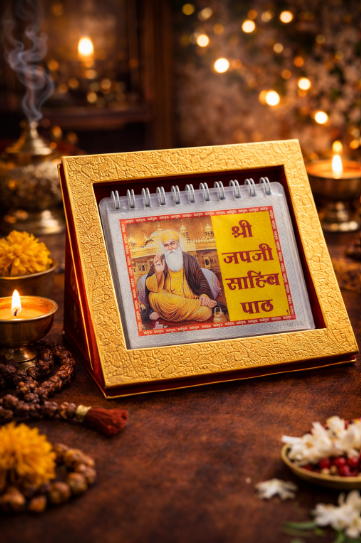 श्री
जपजी
साहिब
पाठ